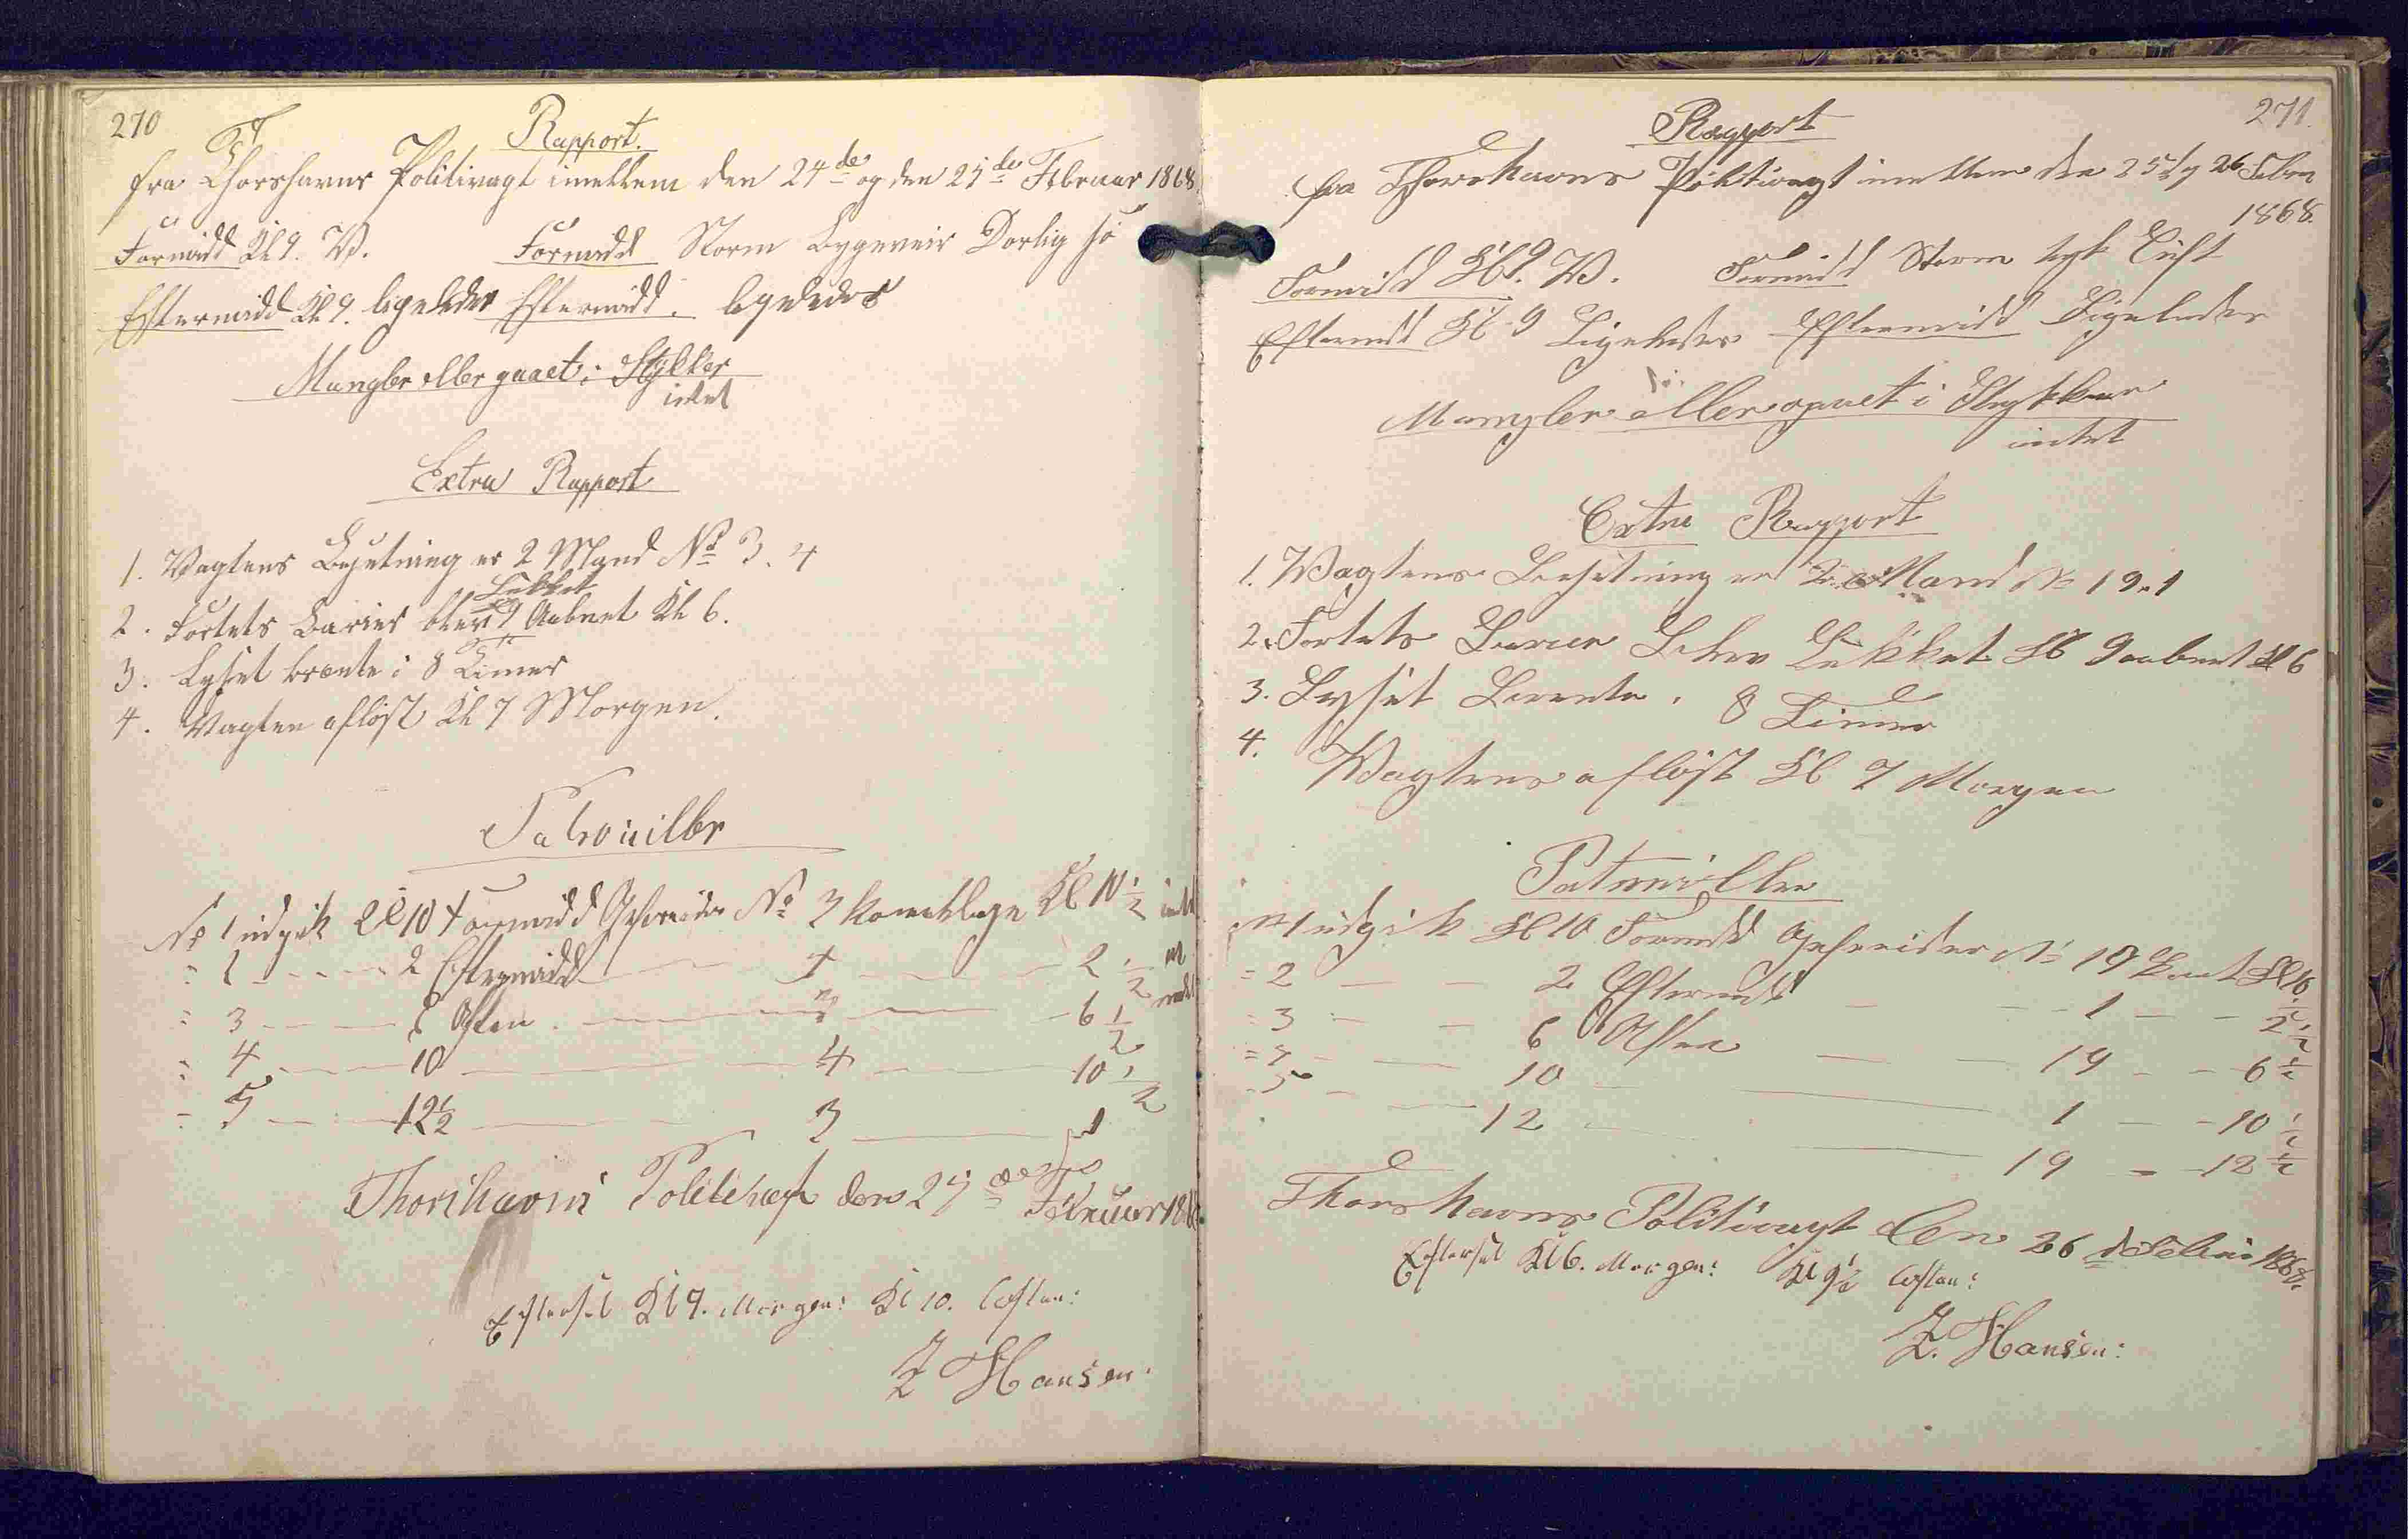 270
Rapport.
fra Thorshavns Politivagt imellem den 24de og den 25de Februar 1868.
Formidd Kl 9. V. Formidd Storm Bygeveir Dorlig Sö
Eftermidd Kl 9. ligeledes Eftermidd. ligeledes
Mangler eller gaaet i Stykker
intet
Extra Rapport
1. Vagtens Besetning er 2 Mand No 3. 4
Lukket
2. Fortets Barier blev 9 Aabnet Kl 6.
3. Lyset brænte i 8 Timer
4. Vagten aflöst Kl 7 Morgen.
Patrouiller
No 1 udgik Kl 10 Formidd Gefreider No 3 kom tilbage Kl 10 1/2
2 Eftermidd 2 1/2
= 3 Aften 6 1/2
= 4 10 4 10 1/2
= 5 12 1/2 3 1
Thorshavns Politivagt den 25de Februar 1868
Efterset Kl 9. Morgen: Kl 10. Aften:
Z Hansen.
271.
Rapport
fra Thorshavns Politivagt imellem den 25 og 26 Febru
1868.
Formidd Kl 9. V. Formidd Storm tyk Luft
Eftermidd Kl 9 Ligeledes Eftermidd Ligeledes
Mangler eller gaaet i Stykker
intet
Extra Rapport
1. Vagtens Besetning er 2 Mand No 19. 1
2. Fortets Barier Blev Lukket Kl 9 aabnet Kl 6
3. Lyset Brente i 8 Timer
4. Vagten aflöst Kl 7 Morgen
Patruiller
No 1 udgik Kl 10 Formidd Gefreider No 19 Kl 10 1/2
= 2 2 Eftermidd 1 2 1/2
= 3 6 Aften 19 6 1/2
= 4 10 1 10 1/2
5 12 19 12 1/2
Thorshavns Politivagt den 26 d Februar 1868.
Efterset Kl 6. Morgen: Kl 9 1/2 Aften:
Z. Hansen: